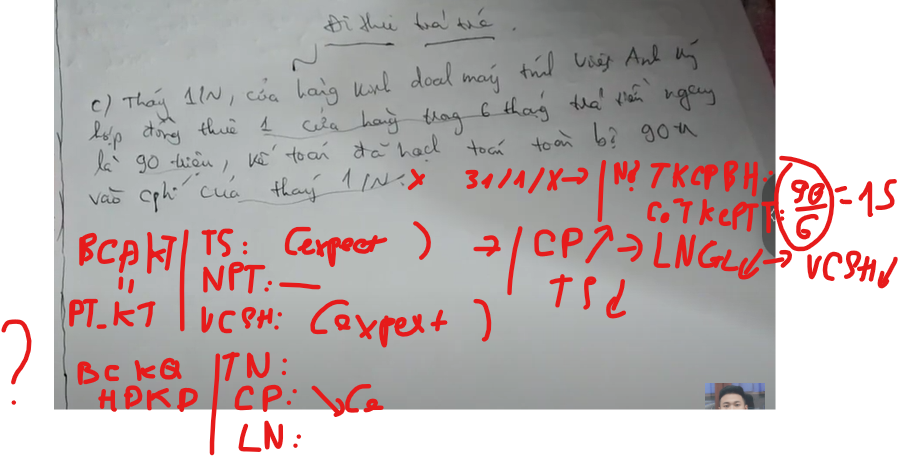 Đi thuê trả trước.
c) Tháng 1/N, cửa hàng kinh doanh máy tính Việt Anh ký
hợp đồng thuê 1 cửa hàng trong 6 tháng trả tiền ngay
là 90 triệu, kế toán đã hạch toán toàn bộ 90tr
vào cphí của tháng 1/N. X
31/1/X → Nợ TKCPBH: 90/6 = 15
Có TKCPTT:
BCĐKT TS: (expect) → CP ↗ → LNGL ↓ → VCSH ↓
" NPT: — TS ↓
PT_KT VCSH: (expext)
?
BCKQ TN:
HĐKD CP:
LN: